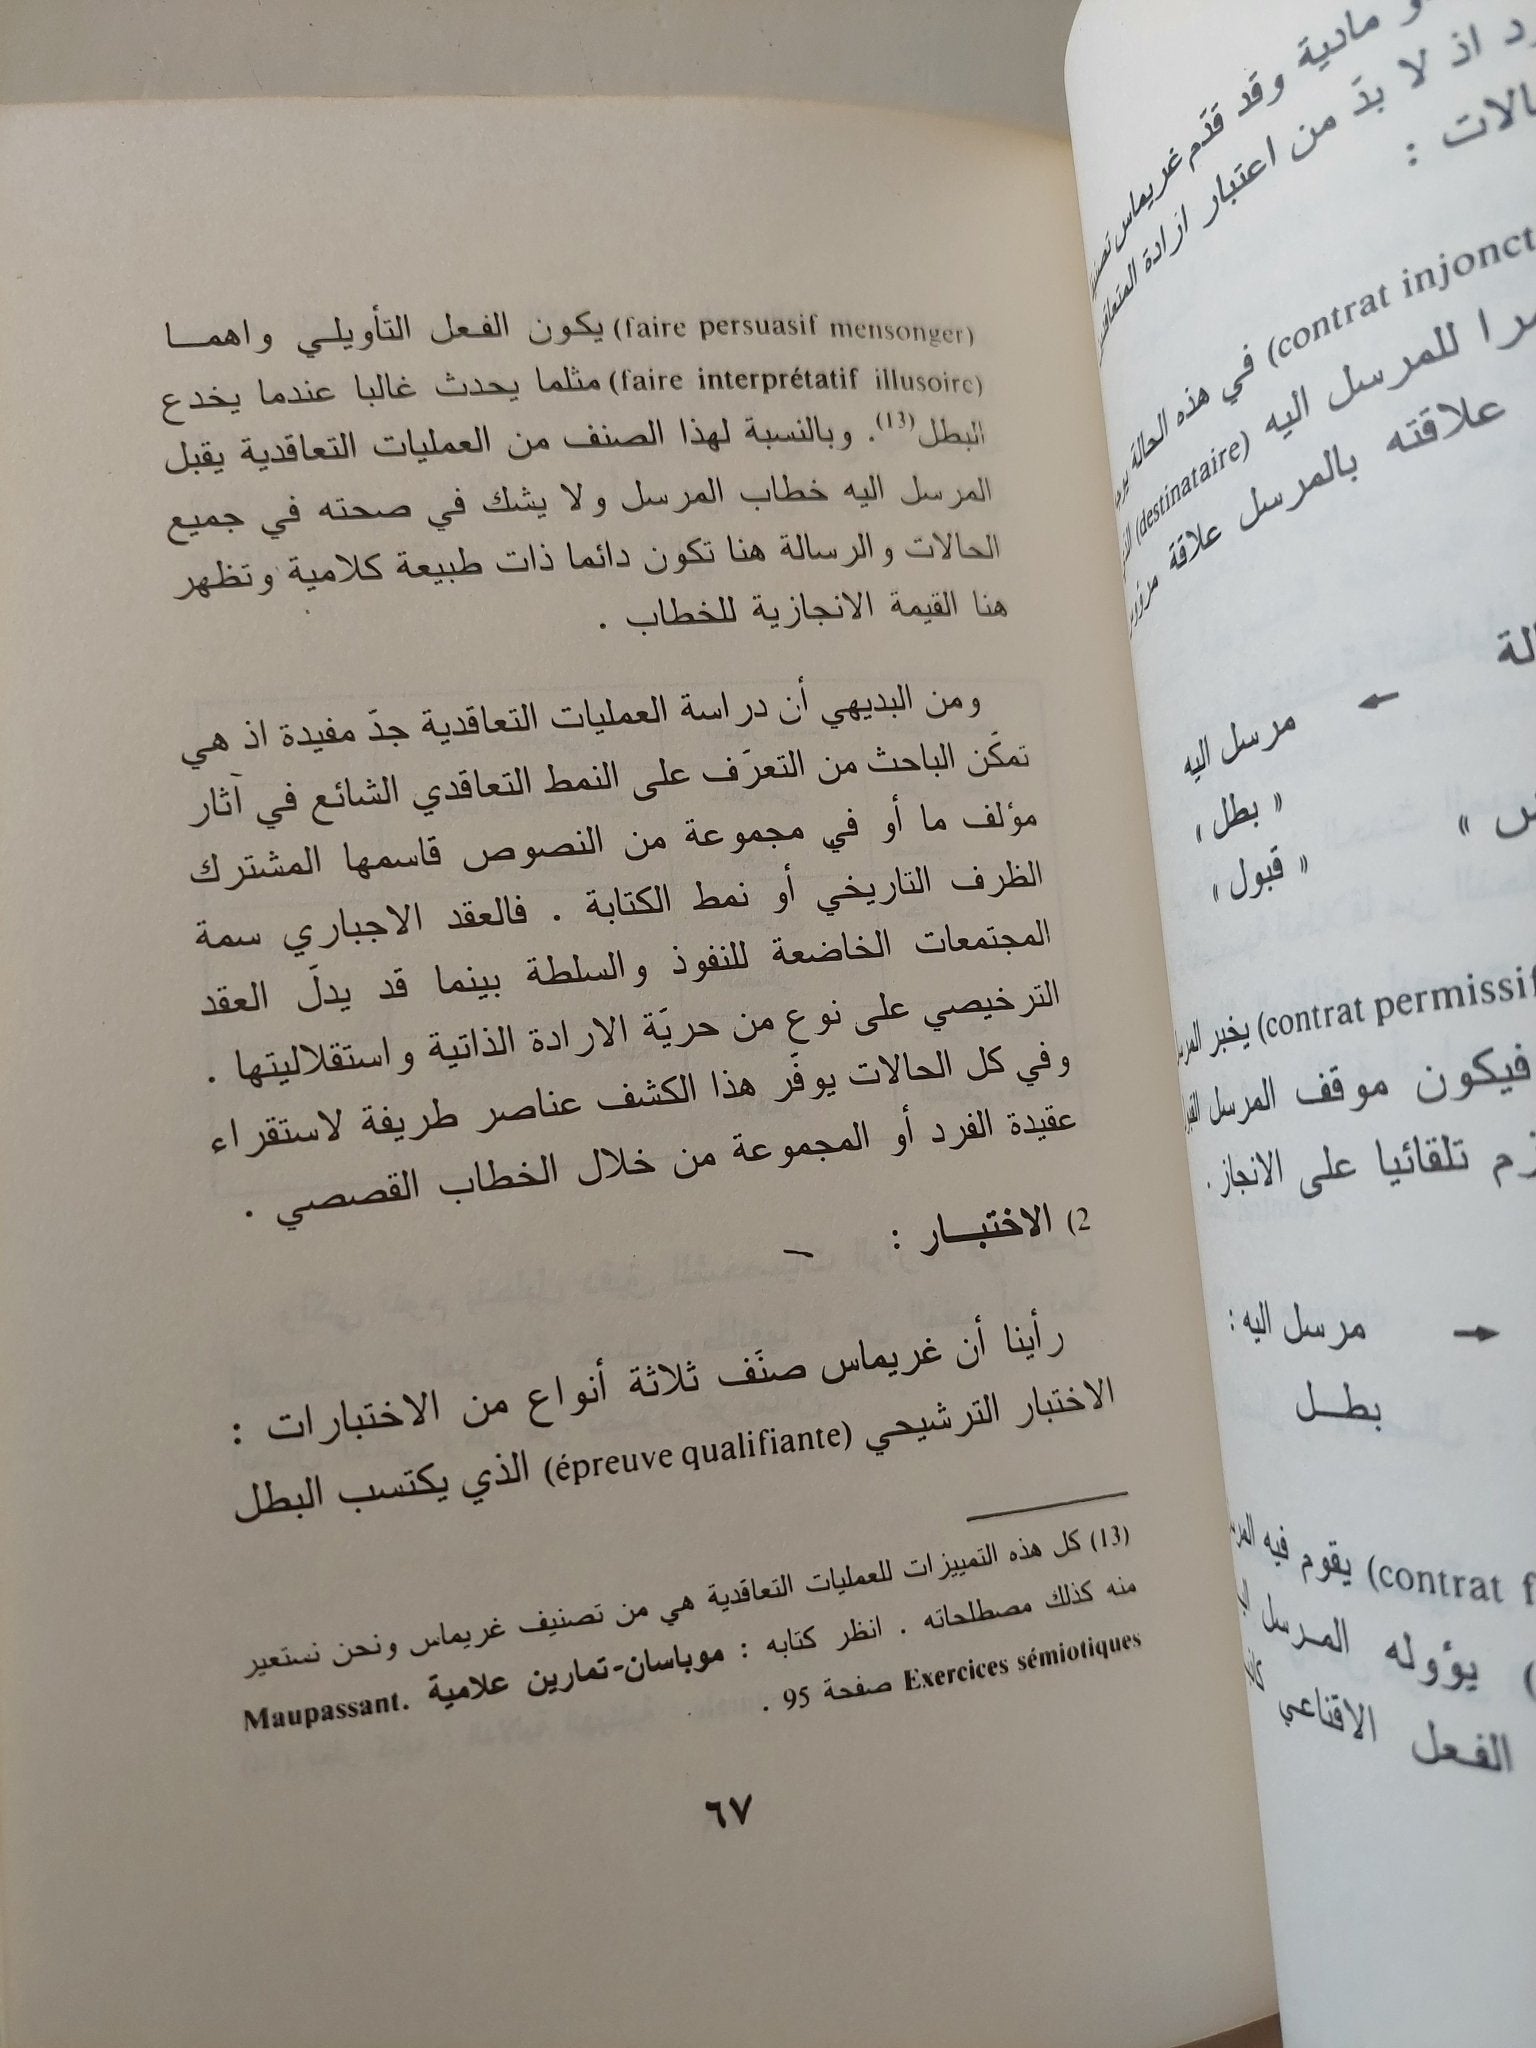 و مادية وقد قدّم غريماس
اذ لا بدّ من اعتبار ارادة
:
(contrat
في هذه الحالة
للمرسل اليه (destinataire)
علاقته بالمرسل علاقة
مرسل اليه
« بطل »
« قبول »
(contrat يخبر
فيكون موقف المرسل
تلقائيا على الانجاز .
مرسل اليه :
بطـــل
(contrat يقوم فيه
يؤوله المـرسل
الفـعل الاقناعي
(faire persuasif mensonger) يكون الفـعل التأويلـي واهمـــا
(faire interprétatif illusoire) مثلما يحدث غالبا عندما يخدع
البطل(13). وبالنسبة لهذا الصنف من العمليات التعاقدية يقبل
المرسل اليه خطاب المرسل ولا يشك في صحته في جميع
الحالات والرسالة هنا تكون دائما ذات طبيعة كلامية وتظهر
هنا القيمة الانجازية للخطاب .
ومن البديهي أن دراسة العمليات التعاقدية جدّ مفيدة اذ هي
تمكّن الباحث من التعرّف على النمط التعاقدي الشائع في آثار
مؤلف ما أو في مجموعة من النصوص قاسمها المشترك
الظرف التاريخي أو نمط الكتابة . فالعقد الاجباري سمة
المجتمعات الخاضعة للنفوذ والسلطة بينما قد يدلّ العقد
الترخيصي على نوع من حريّة الارادة الذاتية واستقلاليتها .
وفي كل الحالات يوفّر هذا الكشف عناصر طريفة لاستقراء
عقيدة الفرد أو المجموعة من خلال الخطاب القصصي .
2) الاختبـــار :
رأينا أن غريماس صنّف ثلاثة أنواع من الاختبارات :
الاختبار الترشيحي (épreuve qualifiante) الذي يكتسب البطل
(13) كل هذه التمييزات للعمليات التعاقدية هي من تصنيف غريماس ونحن نستعير
منه كذلك مصطلحاته . انظر كتابه : موباسان-تمارين علامية Maupassant.
Exercices sémiotiques صفحة 95 .
٦٧